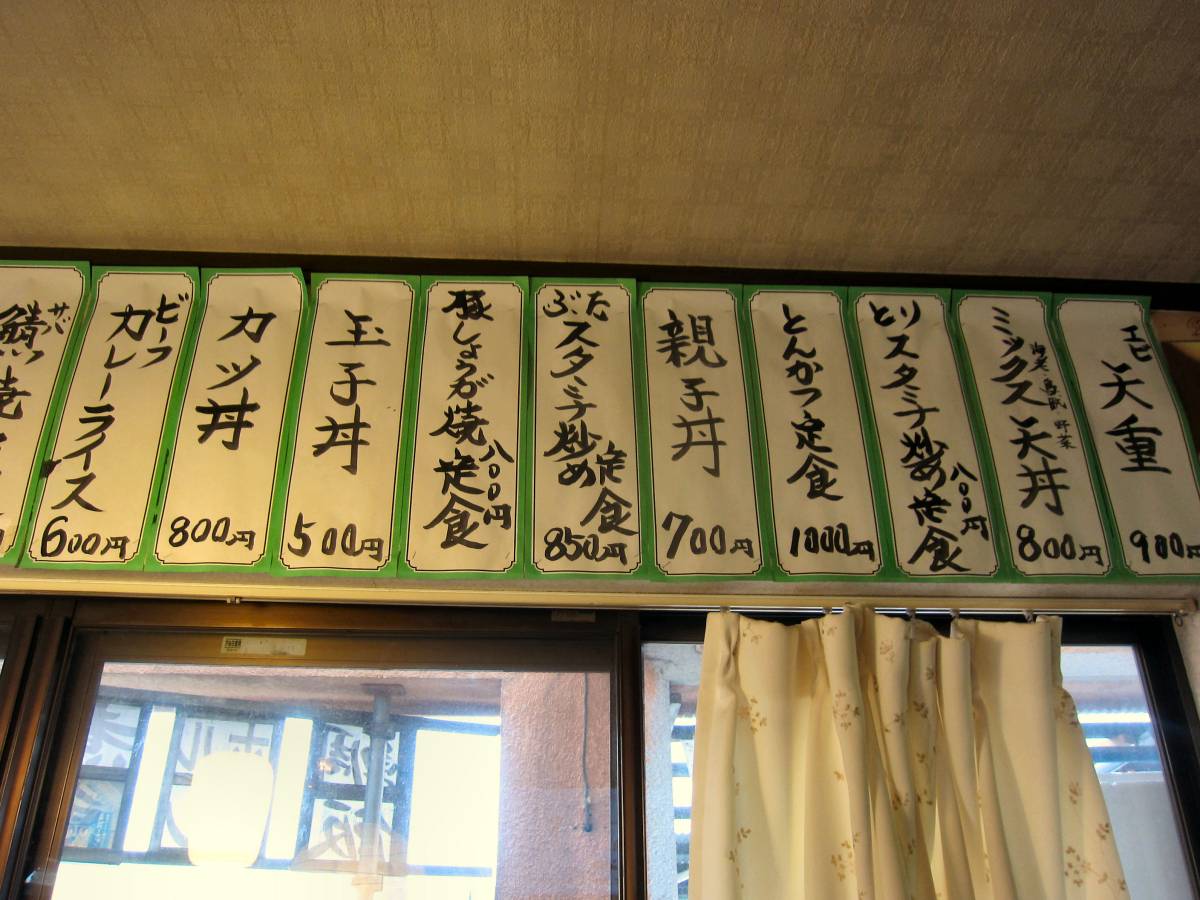 エビ
天重
900円
ミックス天丼
海老・鳥
野菜
800円
とりスタミナ炒め定食
八〇〇円
とんかつ定食
1000円
親子丼
700円
ぶた
スタミナ炒め
定食
850円
豚しょうが焼定食
八〇〇円
玉子丼
500円
カツ丼
800円
ビーフ
カレーライス
600円
サバ
鯖
焼